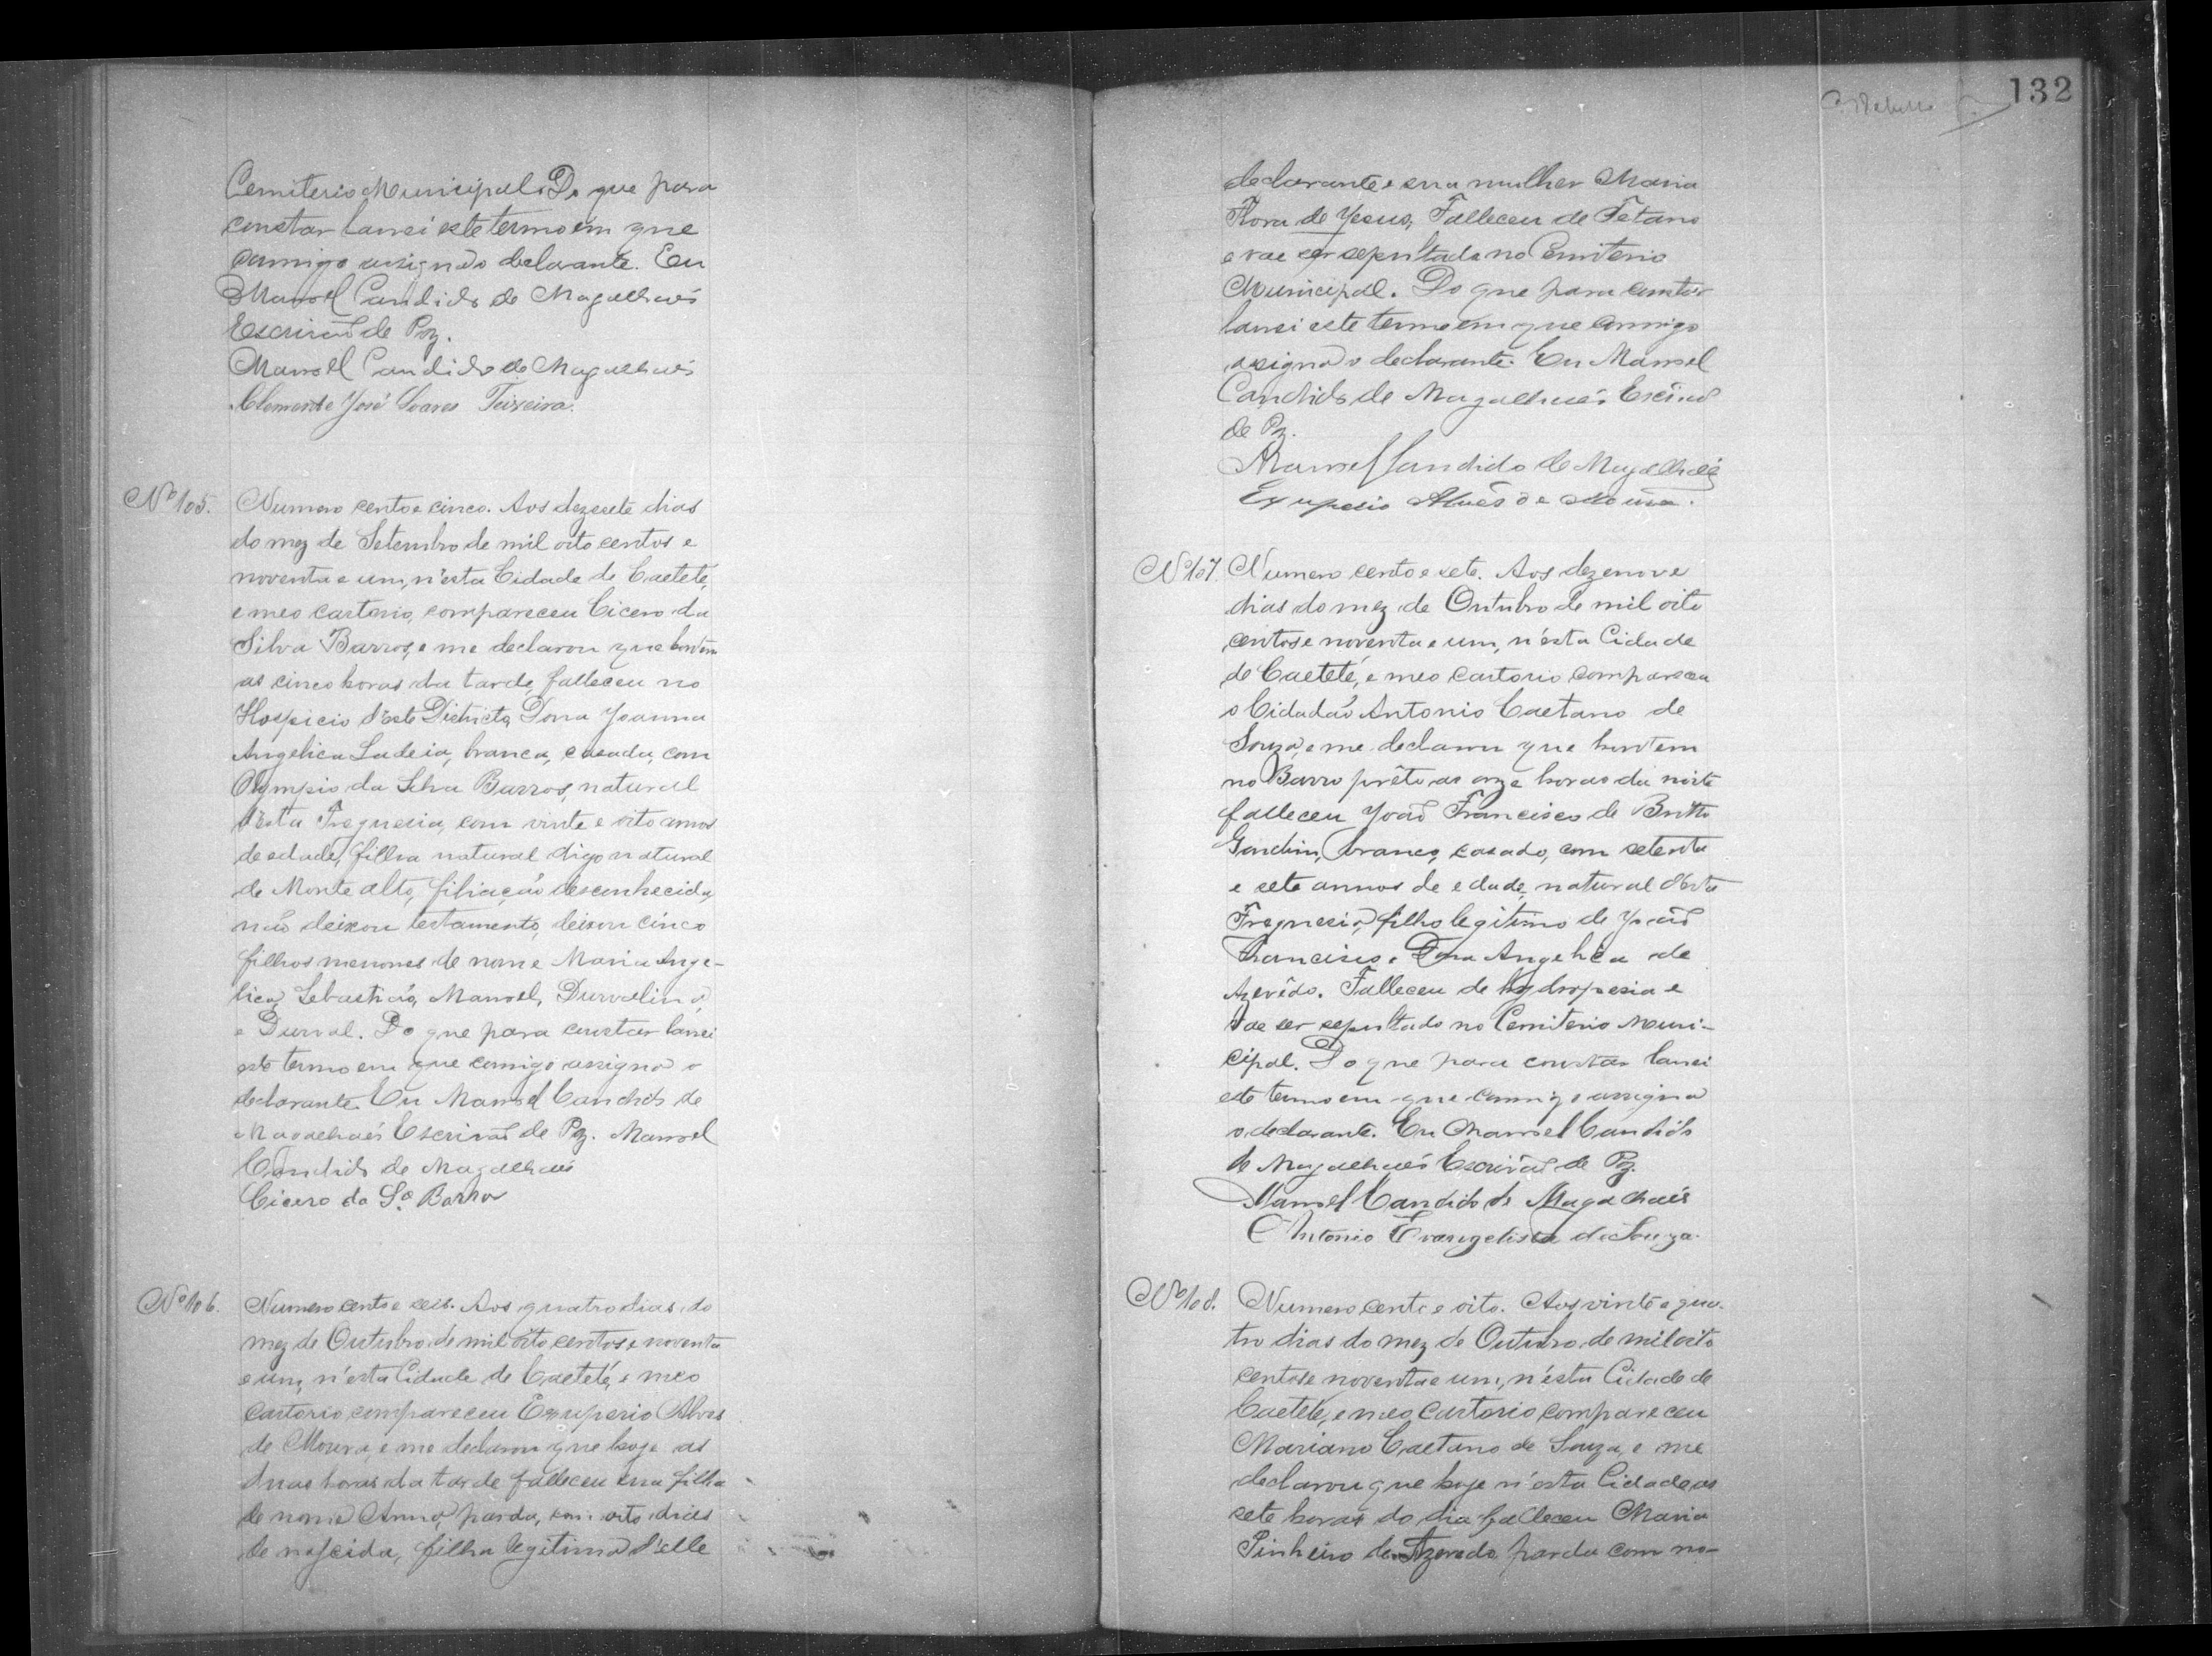 Cemiterio Municipal. Do que para
constar lansei este termo em que
comigo assigna o declarante. Eu
Manoel Candido de Magalhaẽs
Escrivaõ de Paz.
Manoel Candido de Magalhaẽs
Clemente José Soares Teixeira.
Nº 105.
Numero cento e cinco. Aos dezesete dias
do mez de Setembro de mil oito centos e
noventa e um, n'esta Cidade de Caeteté,
e meo cartorio, compareceu Cicero da
Silva Barros, e me declarou que hontem
as cinco horas da tarde, falleceu no
Hospicio d'este Districto, Dona Joanna
Angelica Ladeia, branca, casada, com
Olympio da Silva Barros, natural
d'esta Freguesia, com vinte e oito annos
de edade, filha natural digo natural
de Monte alto, filiaçaõ desconhecida,
naõ deixou testamento, deixou cinco
filhos menores de nome Maria Ange-
lica, Sebastiaõ, Manoel, Durvalina,
e Durval. Do que para constar lansei
este termo em que comigo assigna o
declarante. Eu Manoel Candido de
Magalhaẽs Escrivaõ de Paz. Manoel
Candido de Magalhaẽs
Cicero da Sª Barros
Nº 106.
Numero cento e seis. Aos quatro dias do
mez de Outubro de mil oito centos e noventa
e um, n'esta Cidade de Caeteté, e meo
cartorio compareceu Exuperio Alves
de Moura, e me declarou que hoje as
duas horas da tarde falleceu sua filha
de nome Anna, parda, com oito dias
de nascida, filha legitima d'elle
132
declarante e sua mulher Maria
Flora de Jesus, Falleceu de Tetano
e vae ser sepultada no Cemiterio
Municipal. Do que para constar
lansei este termo em que comigo
asigna o declarante. Eu Manoel
Candido de Magalhaẽs Escrivaõ
de Paz.
Manoel Candido de Magalhaẽs
Exuperio Alves de Moura.
Nº 107.
Numero cento e sete. Aos dezenove
dias do mez de Outubro de mil oito
centos e noventa e um, n'esta Cidade
de Caeteté, e meo cartorio compareceu
o Cidadaõ Antonio Caetano de
Souza, e me declarou que hontem
no Barro prêto as onze horas da noite
falleceu Joaõ Francisco de Britto
Gondim, branco, casado, com setenta
e sete annos de edade, natural d'esta
Freguesia, filho legitimo de Joaõ
Francisco e Dona Angelica de
Azevêdo. Falleceu de hydropesia e
vae ser sepultado no Cemiterio Muni-
cipal. Do que para constar lansei
este termo em que comigo assigna
o declarante. Eu Manoel Candido
de Magalhaẽs Escrivaõ de Paz.
Manoel Candido de Magalhaẽs
Antonio Evangelista de Souza.
Nº 108.
Numero cento e oito. Aos vinte e qua-
tro dias do mez de Outubro de mil oito
centos e noventa e um, n'esta Cidade de
Caeteté, e meo Cartorio compareceu
Mariano Caetano de Souza, e me
declarou que hoje n'esta Cidade as
sete horas do dia falleceu Maria
Pinheiro de Azevedo, parda com no-